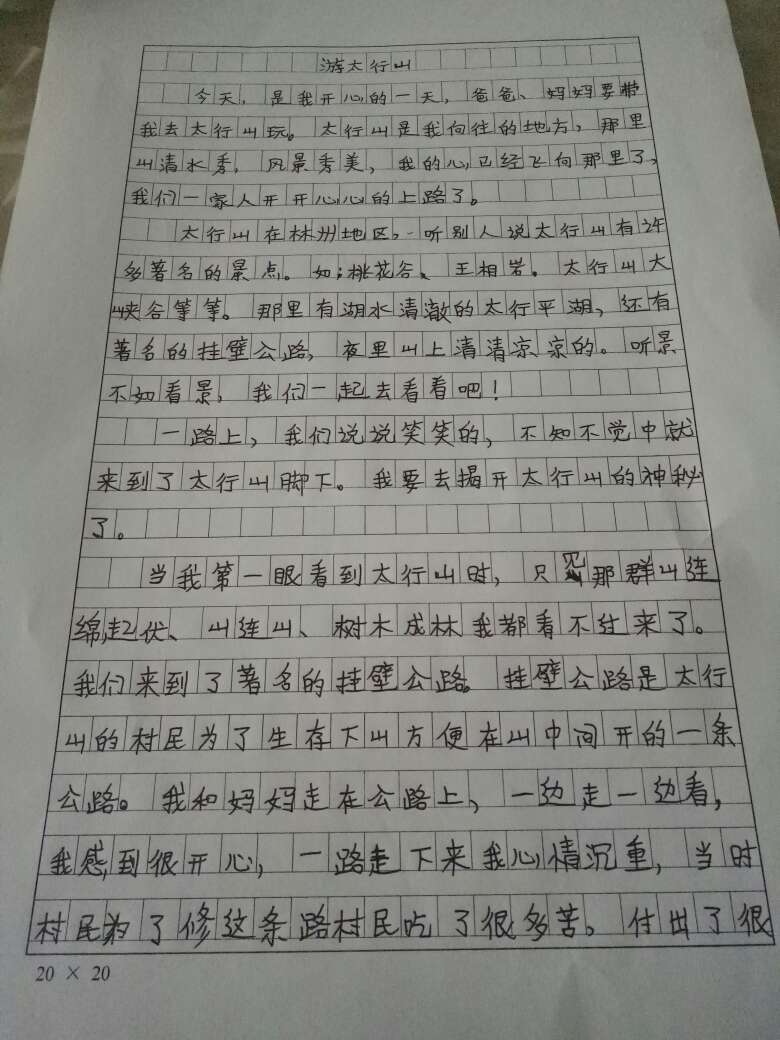 游太行山
今天，是我开心的一天，爸爸、妈妈要带
我去太行山玩。太行山是我向往的地方，那里
山清水秀，风景秀美，我的心已经飞向那里了，
我们一家人开开心心的上路了。
太行山在林州地区，听别人说太行山有许
多著名的景点。如；桃花谷、王相岩。太行山大
峡谷等等。那里有湖水清澈的太行平湖，还有
著名的挂壁公路，夜里山上清清凉凉的。听景
不如看景，我们一起去看看吧！
一路上，我们说说笑笑的，不知不觉中就
来到了太行山脚下。我要去揭开太行山的神秘
了。
当我第一眼看到太行山时，只见那群山连
绵起伏、山连山、树木成林我都看不过来了。
我们来到了著名的挂壁公路。挂壁公路是太行
山的村民为了生存下山方便在山中间开的一条
公路。我和妈妈走在公路上，一边走一边看，
我感到很开心，一路走下来我心情沉重，当时
村民为了修这条路村民吃了很多苦。付出了很
20 × 20